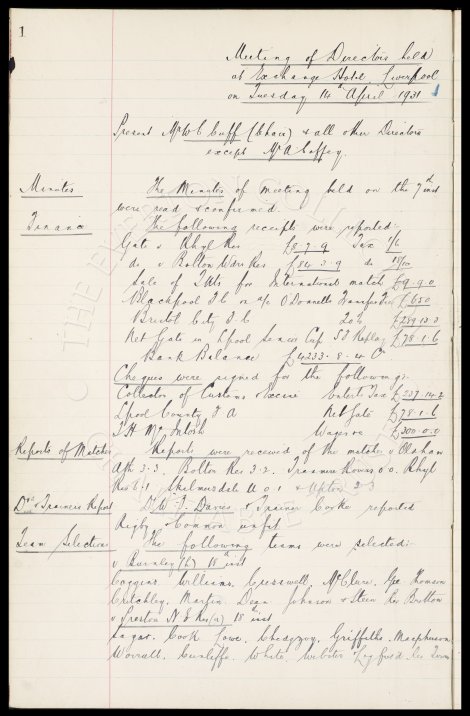 1
Meeting of Directors held
at Exchange Hotel, Liverpool
on Tuesday 14th April 1931
Present Mr W C Cuff (Chair) & all other Directors
except Mr A Gaffney.
Minutes The Minutes of meeting held on the 7th inst
were read & confirmed
Finance The following receipts were reported:
Gate v Rhyl Res £8.7.9 Tax 7/6
do v Bolton Wdrs Res £84.3.9 do
Sale of Tkts for International match £9.9.0
Blackpool F C on a/c O'Donnells Transfer Fee £650
Bristol City F C £289.13.0
Net Gate in Lpool Senior Cup SF Replay £78.1.6
Bank Balance £4233.8.4 Cr
Cheques were signed for the following:
Collector of Customs Excise Enterts Tax £237.14.2
Lpool County F A Net Gate £78.1.6
T H McIntosh Wages £300.0.0
Reports of Matches Reports were received of the matches v Oldham
Ath 3.3. Bolton Res 3.2. Tranmere Rovers 0.0. Rhyl
Res 6.1 Skelmersdale U 0.1 & Upton 2.3
Drs & Trainers Report Dr W. J. Davies & Trainer Cooke reported
Rigby & Common unfit
Team Selection The following teams were selected:
v Burnley (h) 18th inst
Coggins. Williams. Cresswell. McClure. Gee Thomson
Critchley. Martin. Dean. Johnson & Stein Res Britton
v Preston N E Res (a) 18th inst
Sagar. Cook Lowe. Chedgzoy. Griffiths. Macpherson
Worrall. Cunliffe. White. Webster &